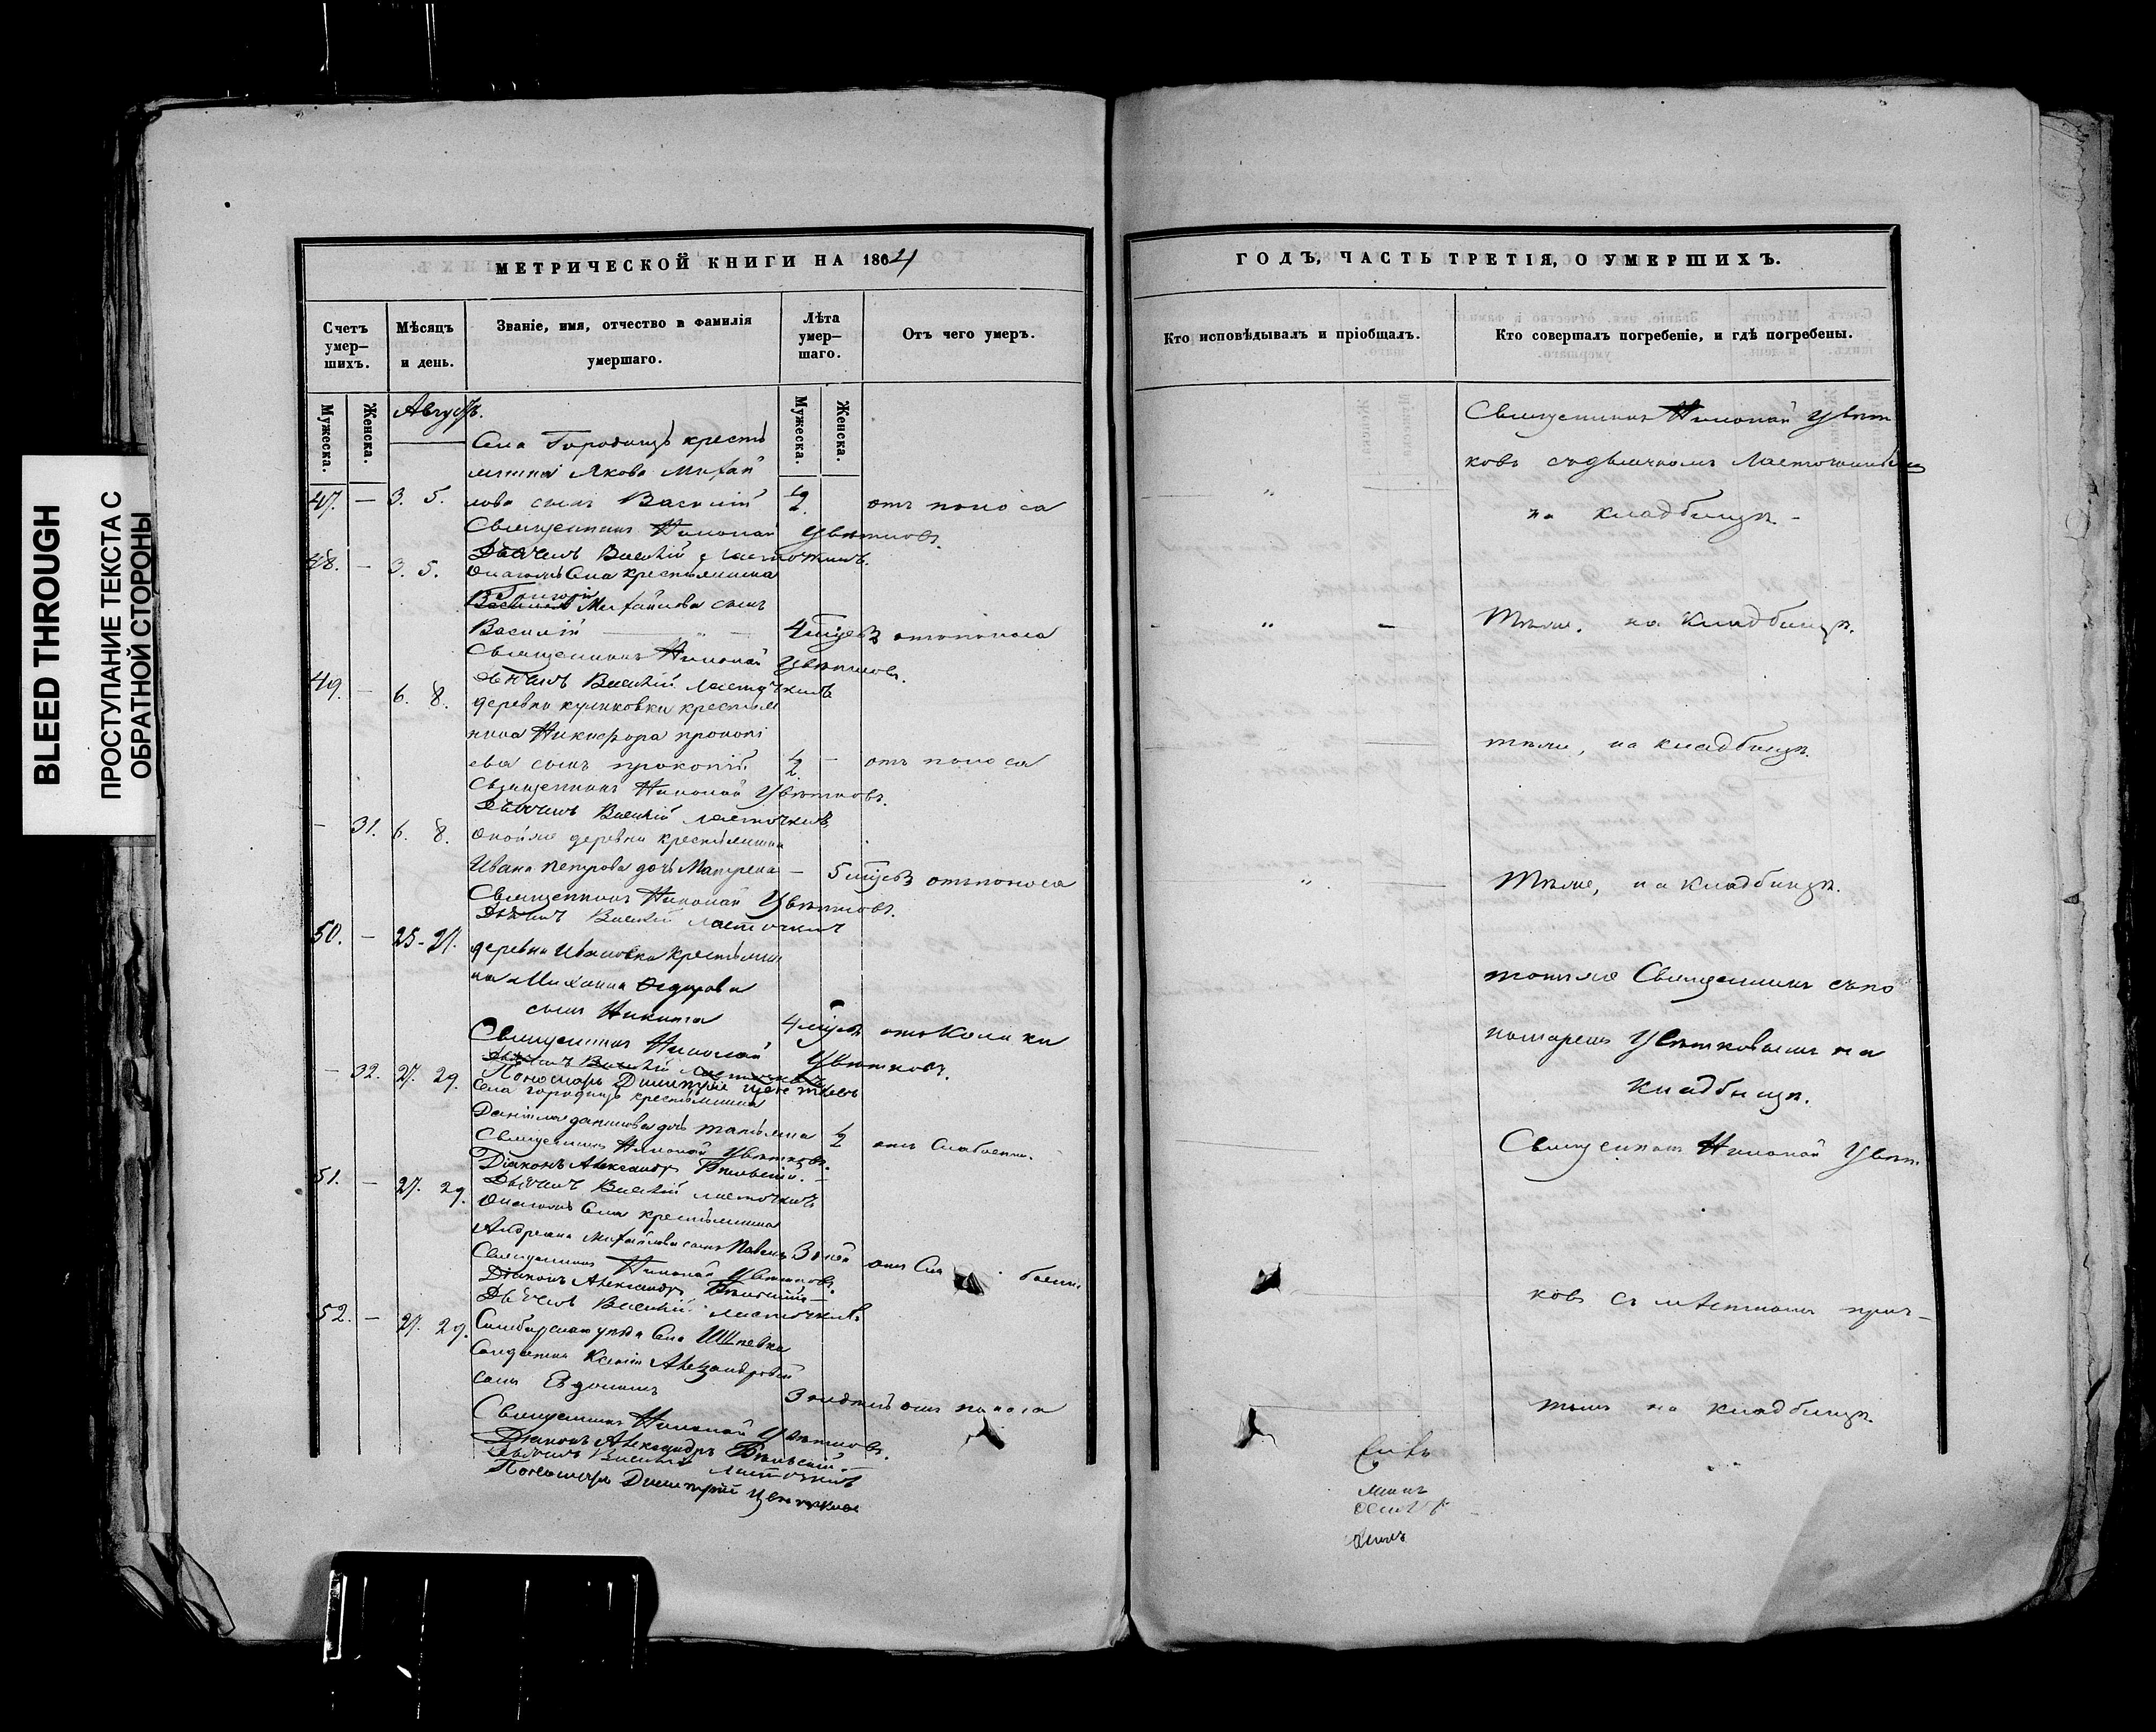 BLEED THROUGH
ПРОСТУПАНИЕ ТЕКСТА С
ОБРАТНОЙ СТОРОНЫ
МЕТРИЧЕСКОЙ КНИГИ НА 1864
Счетъ умер–шихъ.
Мѣсяцъ и день.
Званіе, имя, отчество и фамилія умершаго.
Лѣта умер–шаго.
Отъ чего умеръ.
Мужеска.
Женска.
Августъ.
Мужеска.
Женска.
Села Городищъ кресть
янина Якова Михай
47. — 3. 5. лова сынъ Василій 1/2 отъ поноса
Священникъ Николай Цвѣтковъ.
Дьячекъ Василій Ласточкинъ.
48. — 3. 5. Онагожъ Села крестьянина
Григорія Михайлова сынъ
Василій — 4 мѣсяц отъ поноса
Священникъ Николай Цвѣтковъ.
Дьячекъ Василій Ласточкинъ
49. — 6. 8. деревни куликовки крестья
нина Никифора прокопі
ева сынъ прокопій 1/2 — отъ поноса
Священникъ Николай Цвѣтковъ.
Дьячекъ Василій Ласточкинъ
— 31. 6. 8. Онойже деревни крестьянина
Ивана Петрова дочь Матрена — 5 мѣсяц отъ поноса
Священникъ Николай Цвѣтковъ.
Дьячекъ Василій Ласточкинъ
50. — 25. 27. деревни Ивановки крестьяни
на Михаила Федорова
сынъ Никита 4 мѣсяц отъ Колики
Священникъ Николай Цвѣтковъ.
Дьячекъ Василій Ласточкинъ
Пономарь Димитрій Цвѣтковъ
— 32. 27. 29. Села городищъ крестьянина
Даніила данилова дочь татьяна 1/2 отъ Слабости.
Священникъ Николай Цвѣтковъ.
Діаконъ Александръ
Дьячекъ Василій Ласточкинъ
51. — 27. 29. Онагожъ Села крестьянина
Андреяна Михайлова сынъ Павелъ 3 дней отъ Сла бости
Священникъ Николай Цвѣтковъ.
Діаконъ Александръ
Дьячекъ Василій Ласточкинъ
52. — 27. 29. Симбирскаго уѣзда Села
Солдатки Ксеніи Александровой
сынъ Евдокимъ 3 отъ поноса
Священникъ Николай Цвѣтковъ.
Діаконъ Александръ
Дьячекъ Василій Ласточкинъ
Пономарь Димитрій Цвѣтковъ
ГОДЪ, ЧАСТЬ ТРЕТІЯ, О УМЕРШИХЪ.
Кто исповѣдывалъ и пріобщалъ.
Кто совершалъ погребеніе, и гдѣ погребены.
Священникъ Николай Цвѣт
ковъ съ дьячкомъ Ласточкинымъ
на кладбищѣ. –
Тѣже, на кладбищѣ.
тѣже, на кладбищѣ.
Тѣже, на кладбищѣ.
тотъже Священникъ съ по
номаремъ Цвѣтковымъ на
кладбищѣ.
Священникъ Николай Цвѣт
ковъ съ мѣстнымъ прич–
томъ на кладбищѣ.